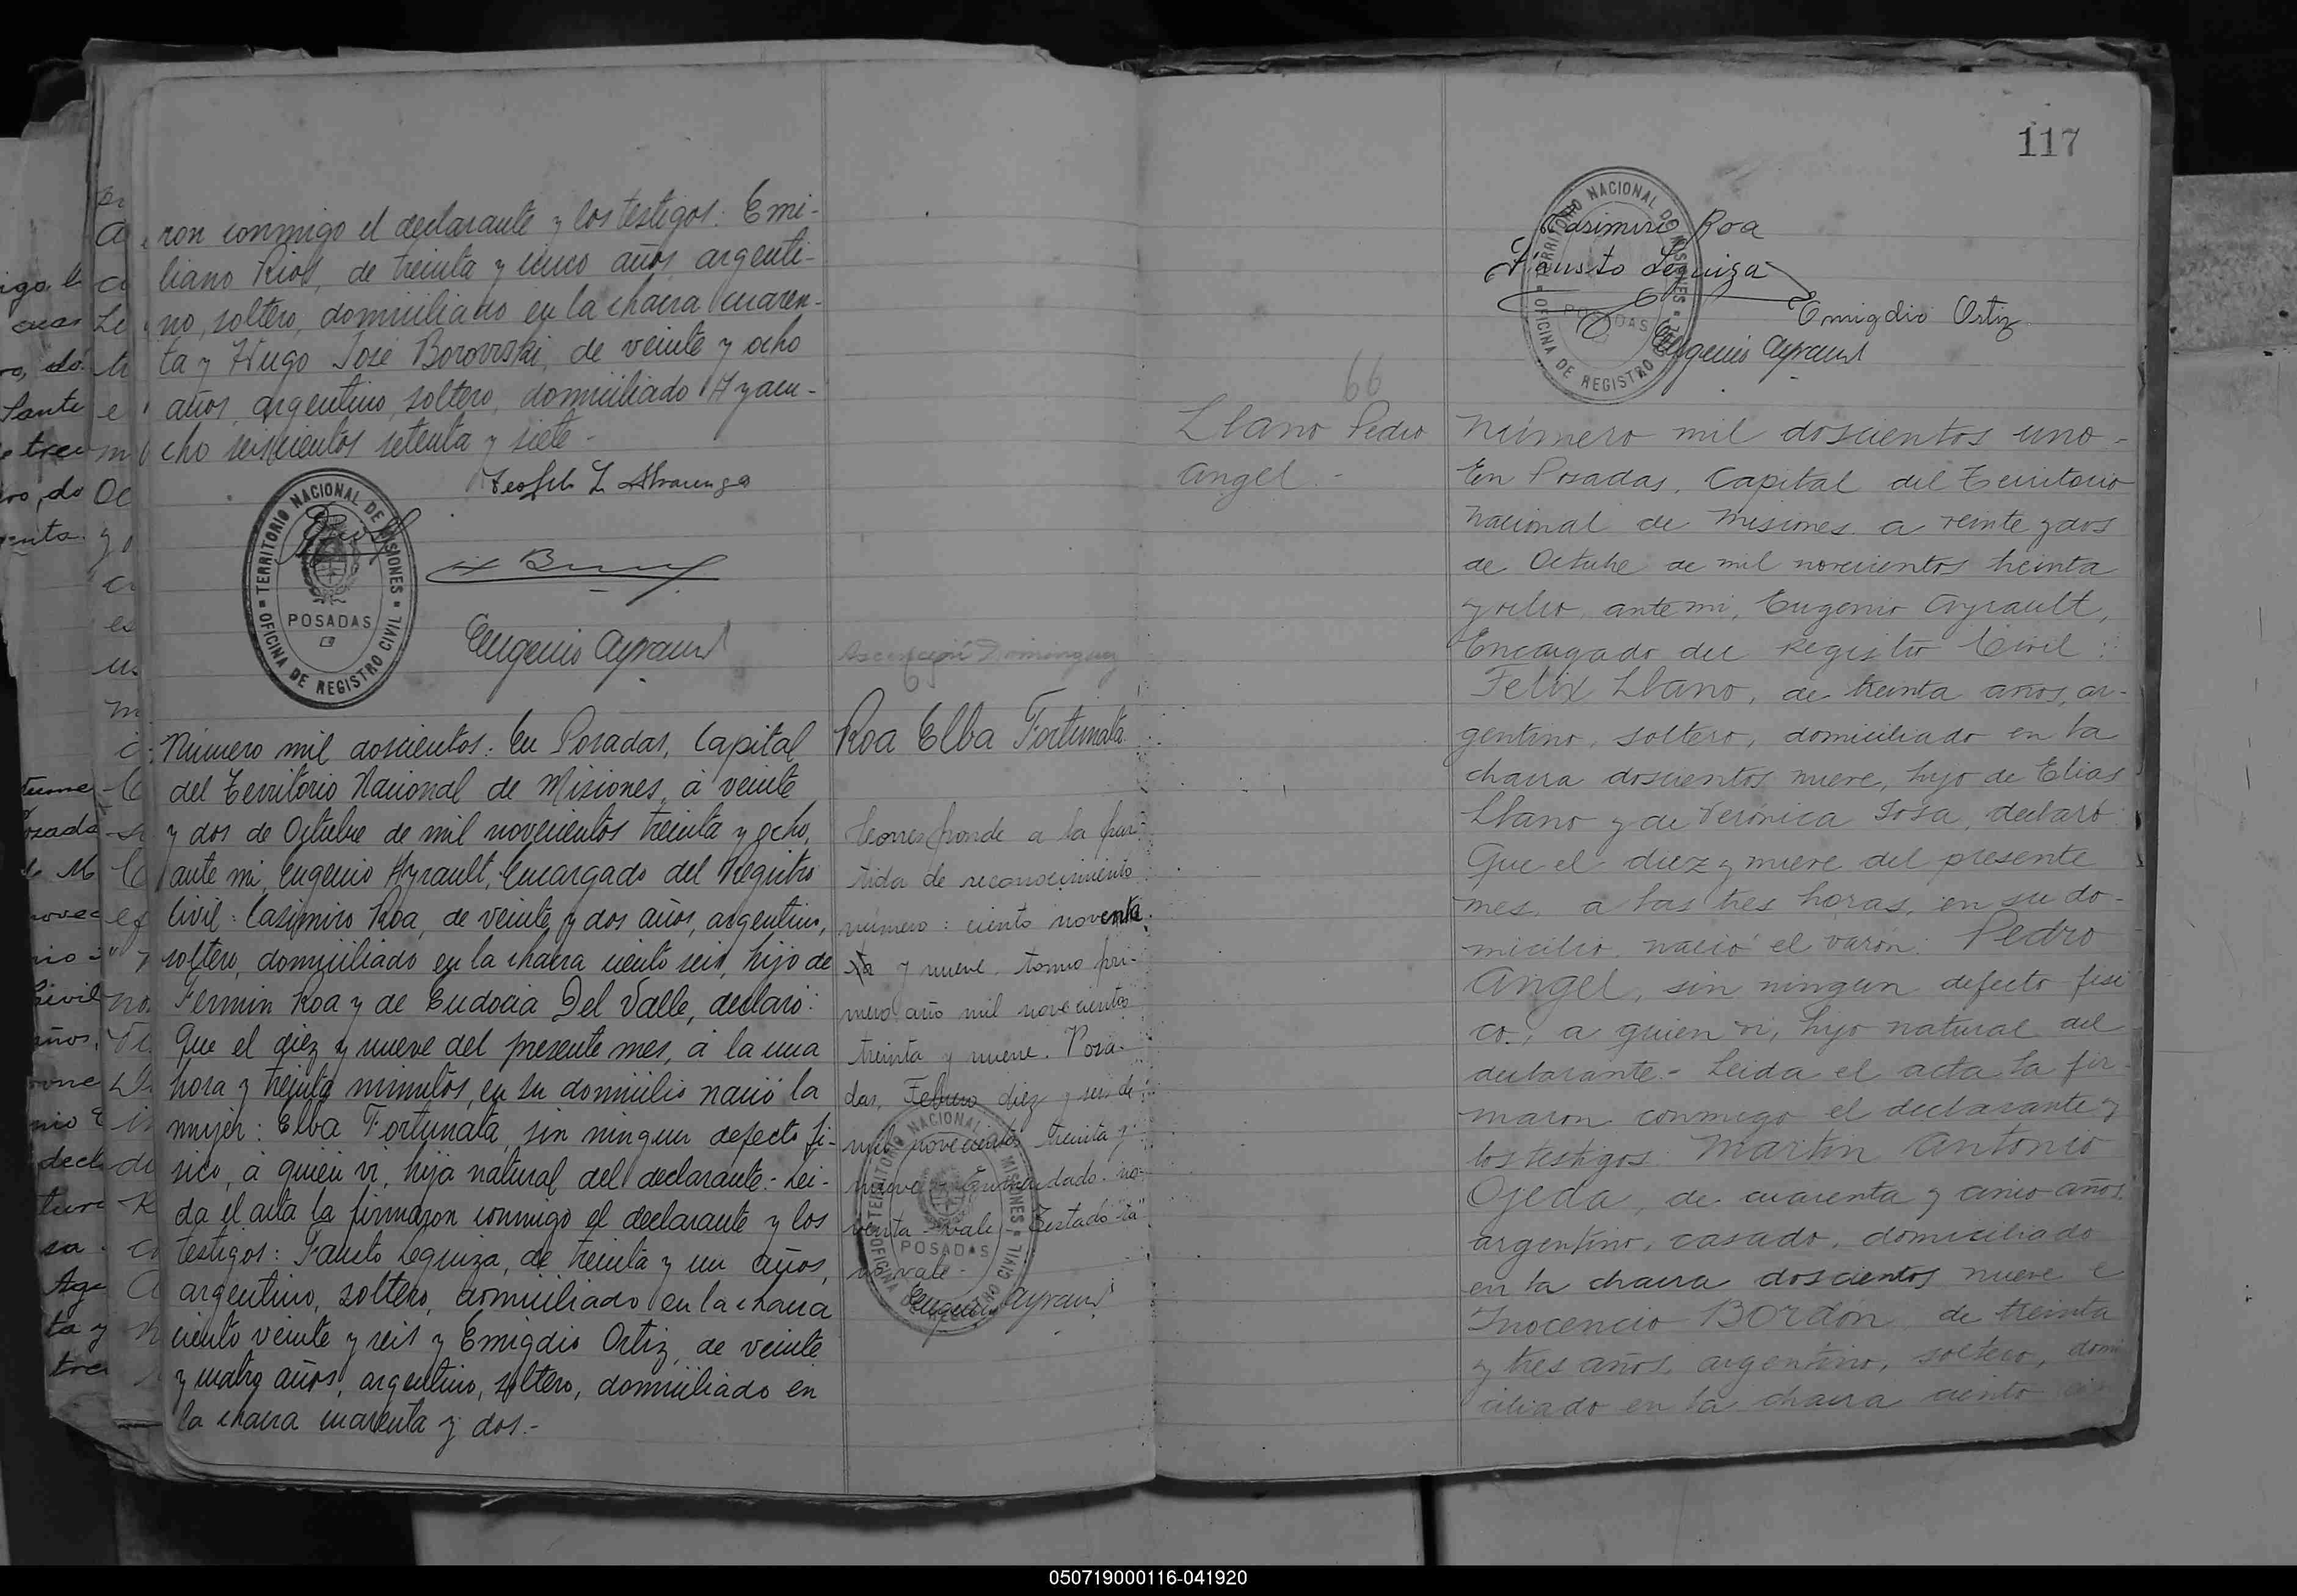 ron conmigo el declarante y los testigos: Emi-
liano Rios, de treinta y cinco años, argenti-
no, soltero, domiciliado en la chacra cuaren-
ta y Hugo José Borovski, de veinte y ocho
años, argentino, soltero, domiciliado Ayacu-
cho seiscientos setenta y siete -
TERRITORIO NACIONAL DE MISIONES
POSADAS
OFICINA DE REGISTRO CIVIL
Eugenio Ayrault
Número mil doscientos. En Posadas, Capital
del Territorio Nacional de Misiones, á veinte
y dos de Octubre de mil novecientos treinta y ocho,
ante mi, Eugenio Ayrault, Encargado del Registro
Civil: Casimiro Roa, de veinte y dos años, argentino,
soltero, domiciliado en la chacra ciento seis, hijo de
Fermin Roa y de Eudocia Del Valle, declaró:
Que el diez y nueve del presente mes, á la una
hora y treinta minutos, en su domicilio nació la
mujer: Elba Fortunata, sin ningun defecto fi-
sico, á quien vi, hija natural del declarante.- Lei-
da el acta la firmaron conmigo el declarante y los
testigos: Fausto Leguiza, de treinta y un años,
argentino, soltero, domiciliado en la chacra
ciento veinte y seis y Emigdio Ortiz, de veinte
y cuatro años, argentino, soltero, domiciliado en
la chacra cuarenta y dos.-
Dominguez
Roa Elba Fortunata
Corresponde a la par-
tida de reconocimiento
número: ciento noventa
ta y nueve, tomo pri-
mero año mil novecientos
treinta y nueve. Posa-
das, Febrero diez y seis de
mil novecientos treinta y
nueve - Enmendado: no-
venta - vale - Testado "ta"
no vale -
Eugenio Ayrault
TERRITORIO NACIONAL DE MISIONES
POSADAS
OFICINA DE REGISTRO CIVIL
117
TERRITORIO NACIONAL DE MISIONES
POSADAS
OFICINA DE REGISTRO CIVIL
Casimiro Roa
Fausto Leguiza
Emigdio Ortiz
Eugenio Ayrault
66
Llano Pedro
Angel.-
Número mil doscientos uno -
En Posadas, Capital del Territorio
Nacional de Misiones, a veinte y dos
de Octubre de mil novecientos treinta
y ocho, ante mi, Eugenio Ayrault,
Encargado del Registro Civil:
Felix Llano, de treinta años, ar-
gentino, soltero, domiciliado en la
chacra doscientos nueve, hijo de Elias
Llano y de Verónica Sosa, declaró:
Que el diez y nueve del presente
mes, a las tres horas, en su do-
micilio, nació el varón: Pedro
Angel, sin ningun defecto fisi
co, a quien vi, hijo natural del
declarante.- Leida el acta la fir-
maron conmigo el declarante y
los testigos: Martin Antonio
Ojeda, de cuarenta y cinco años,
argentino, casado, domiciliado
en la chacra doscientos nueve e
Inocencio Bordon, de treinta
y tres años, argentino, soltero, domi
ciliado en la chacra ciento
050719000116-041920